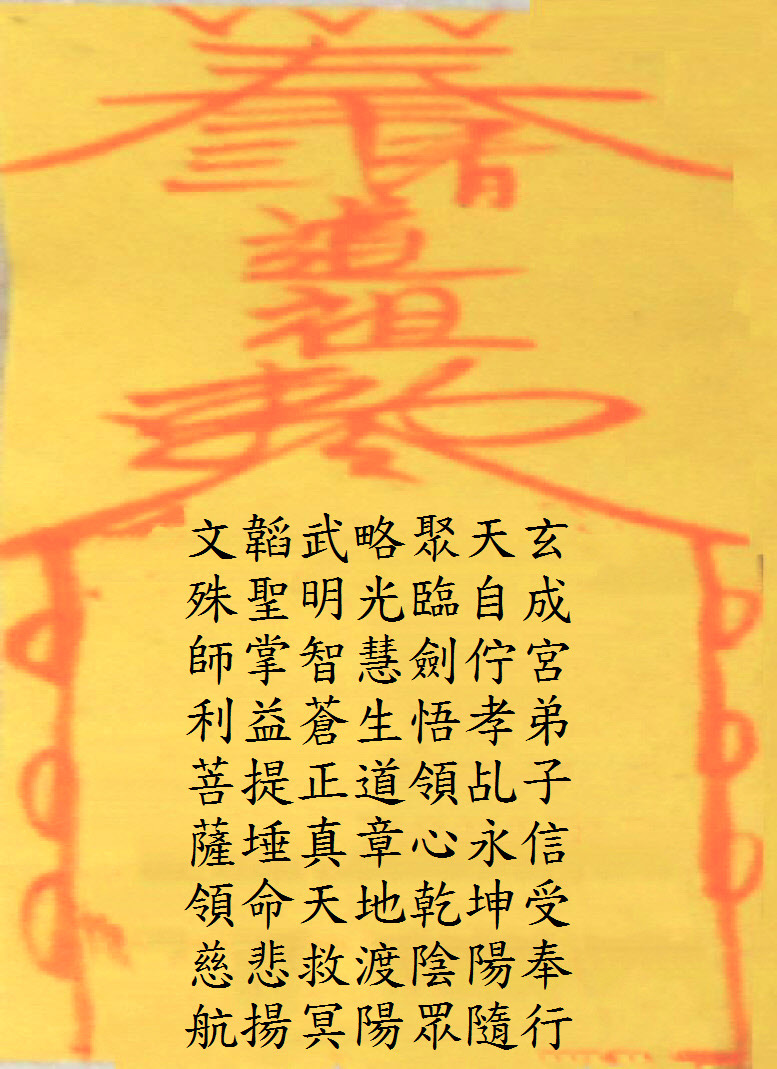 道祖
文韜武略聚天玄
殊聖明光臨自成
師掌智慧劍佇宮
利益蒼生悟孝弟
菩提正道領乩子
薩埵真章心永信
領命天地乾坤受
慈悲救渡陰陽奉
航揚冥陽眾隨行